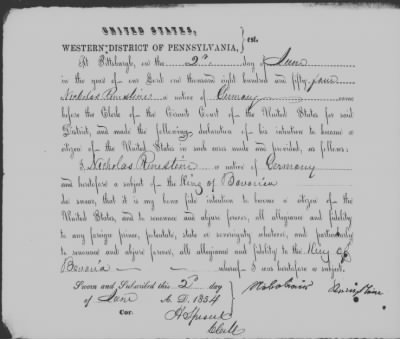 UNITED STATES,
WESTERN DISTRICT OF PENNSYLVANIA, } sct.
At Pittsburgh, on the 2d day of June
in the year of our Lord one thousand eight hundred and fifty four
Nicholas a native of Germany came
before the Clerk of the Circuit Court of the United States for said
District, and made the following declaration of his intention to become a
citizen of the United States in such cases made and provided, as follows:
I, Nicholas a native of Germany
and heretofore a subject of the King of Bavaria
do swear, that it is my bona fide intention to become a citizen of the
United States, and to renounce and abjure forever, all allegiance and fidelity
to any foreign prince, potentate, state or sovereignty whatever, and particularly
to renounce and abjure forever, all allegiance and fidelity to the King of
Bavaria whereof I was heretofore a subject.
Sworn and Subscribed this 2d day
of June A. D. 1854
Cor. Clerk